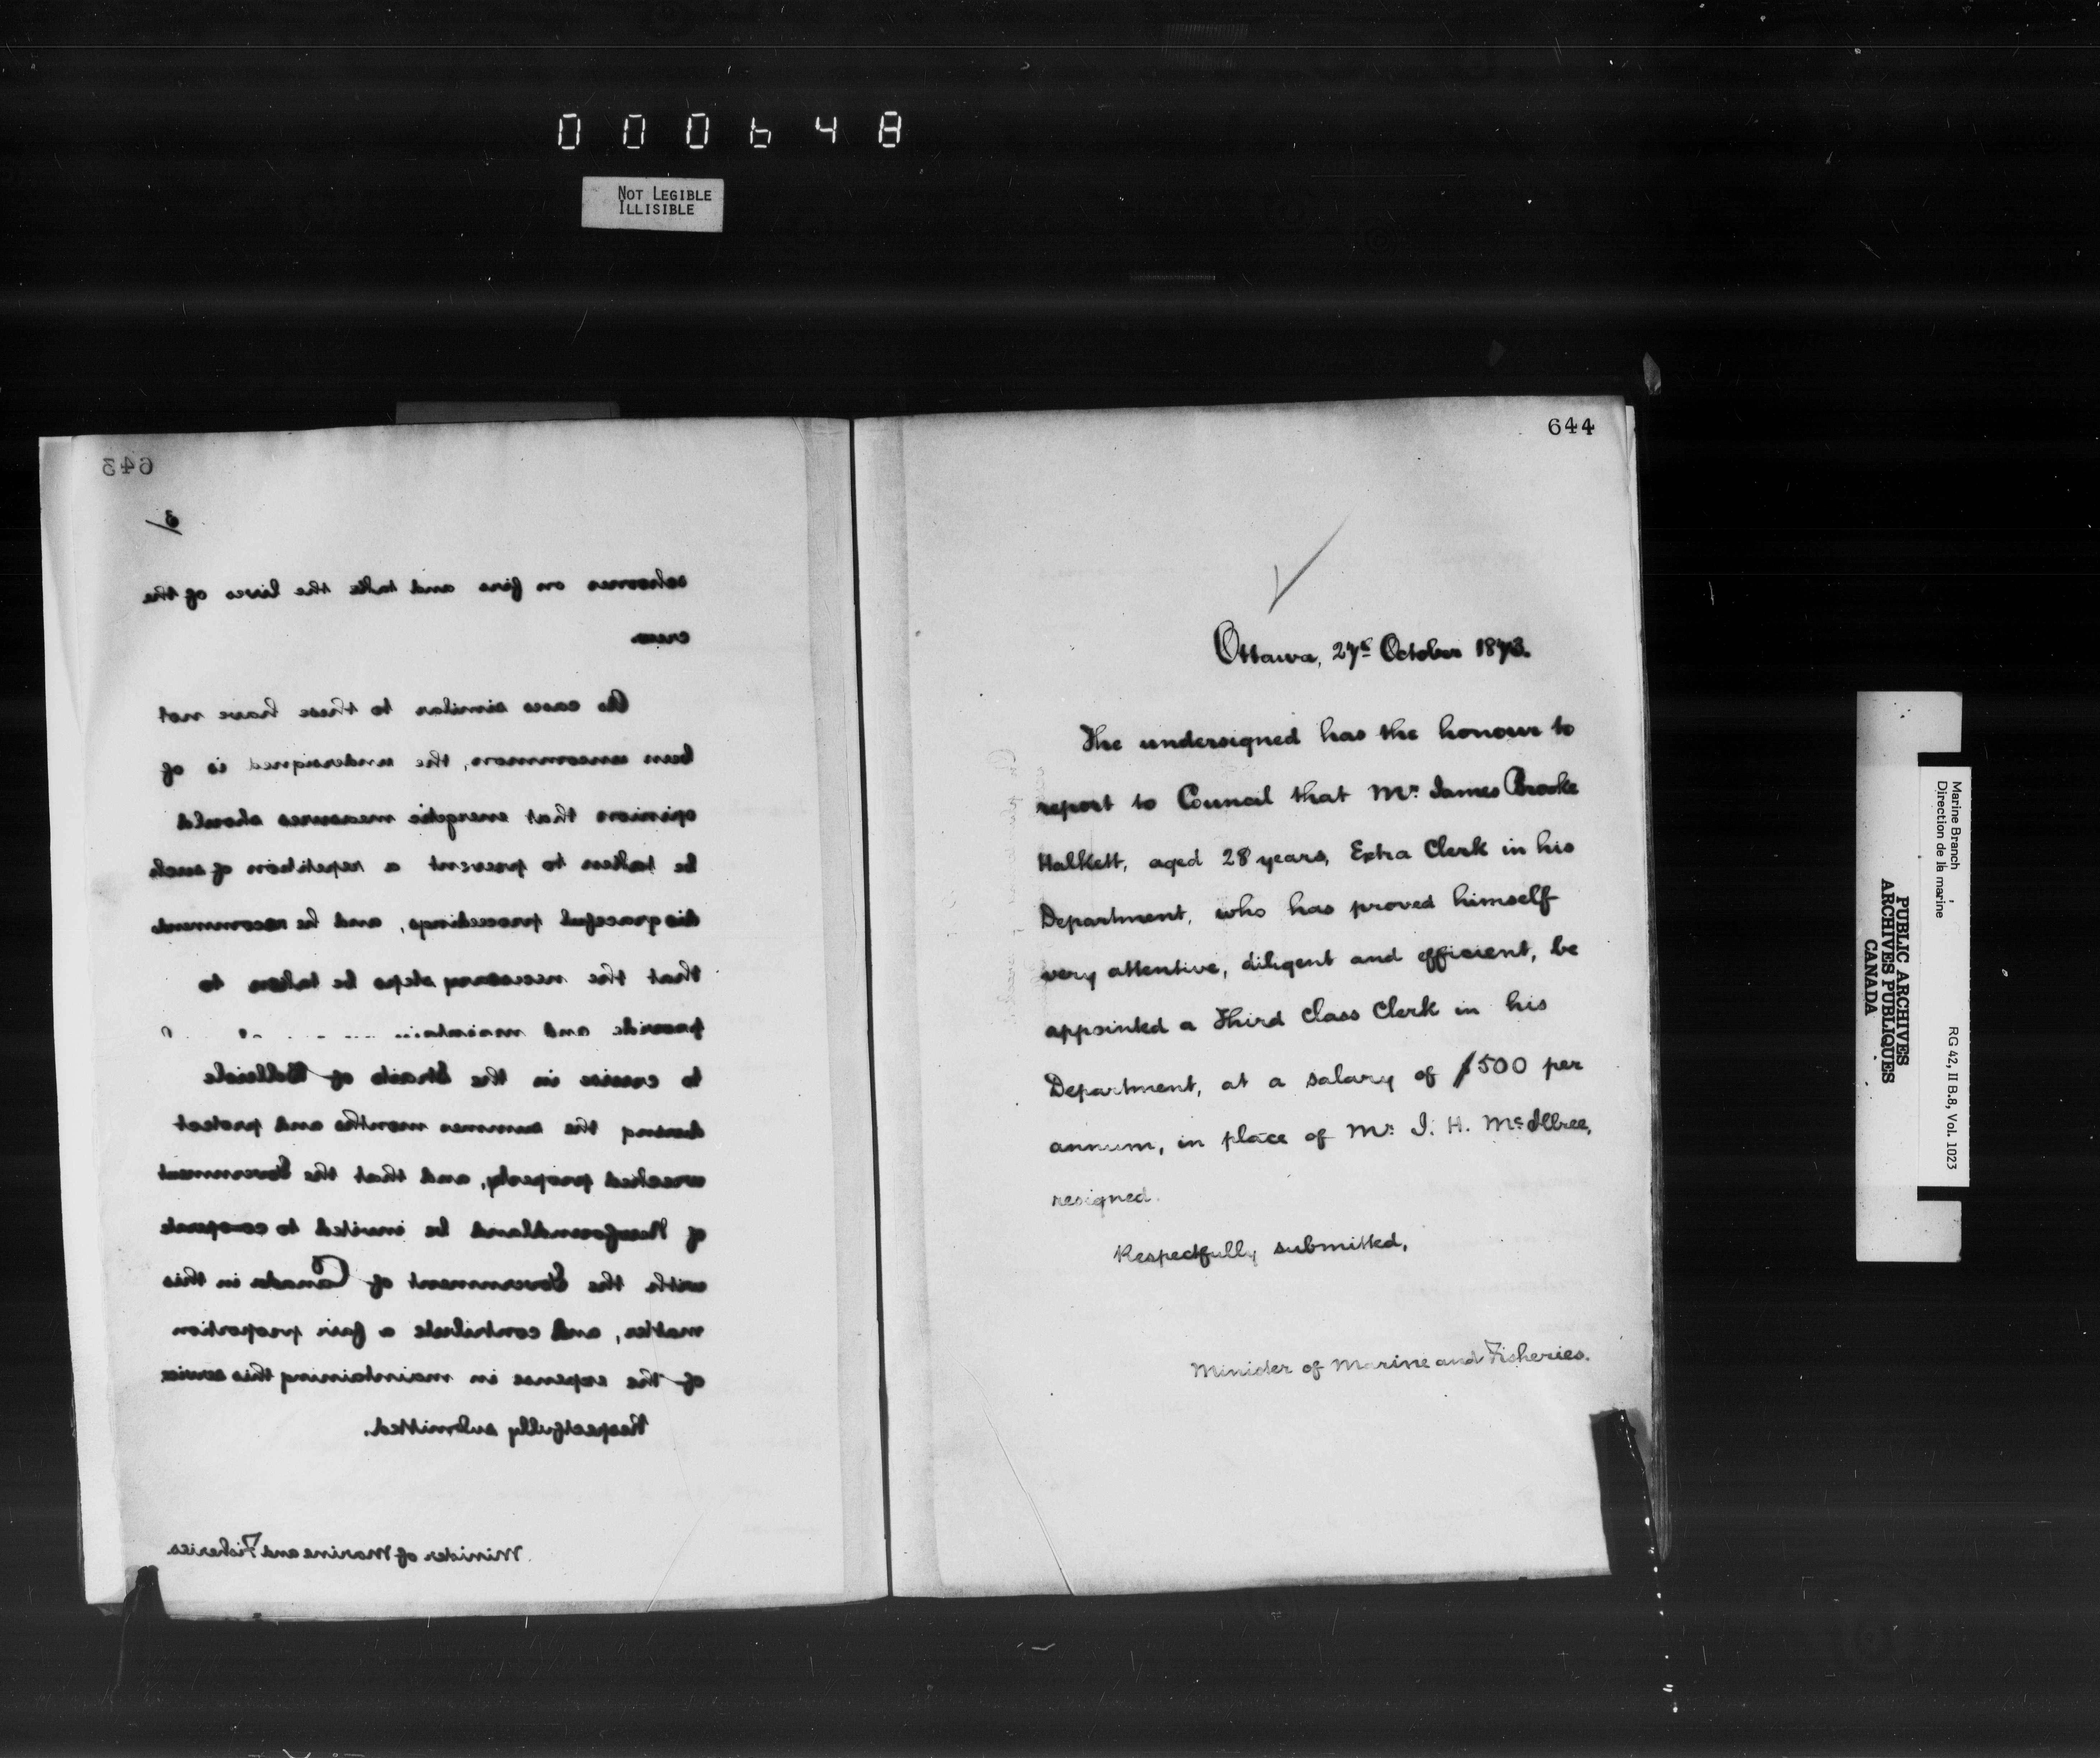 000648
NOT LEGIBLE
ILLISIBLE
643
3
schooner on fire and take the lives of the
crew.
As cases similar to these have not
been uncommon, the undersigned is of
opinion that energetic measures should
be taken to prevent a repetition of such
disgraceful proceedings, and he recommends
that the necessary steps be taken to
provide and maintain
to cruise in the Straits of Belleisle
during the summer months and protect
wrecked property, and that the Government
of Newfoundland be invited to co-operate
with the Government of Canada in this
matter, and contribute a fair proportion
of the expense in maintaining this service
Respectfully submitted.
Minister of Marine and Fisheries.
644
Ottawa, 27th October 1873.
The undersigned has the honour to
report to Council that Mr. James Brooke
Halkett, aged 28 years, Extra Clerk in his
Department, who has proved himself
very attentive, diligent and efficient, be
appointed a Third Class Clerk in his
Department, at a salary of $500 per
annum, in place of Mr. J. H. McIllree,
resigned.
Respectfully submitted,
Minister of Marine and Fisheries.
Marine Branch
Direction de la marine
RG 42, II B.8, Vol. 1023
PUBLIC ARCHIVES
ARCHIVES PUBLIQUES
CANADA